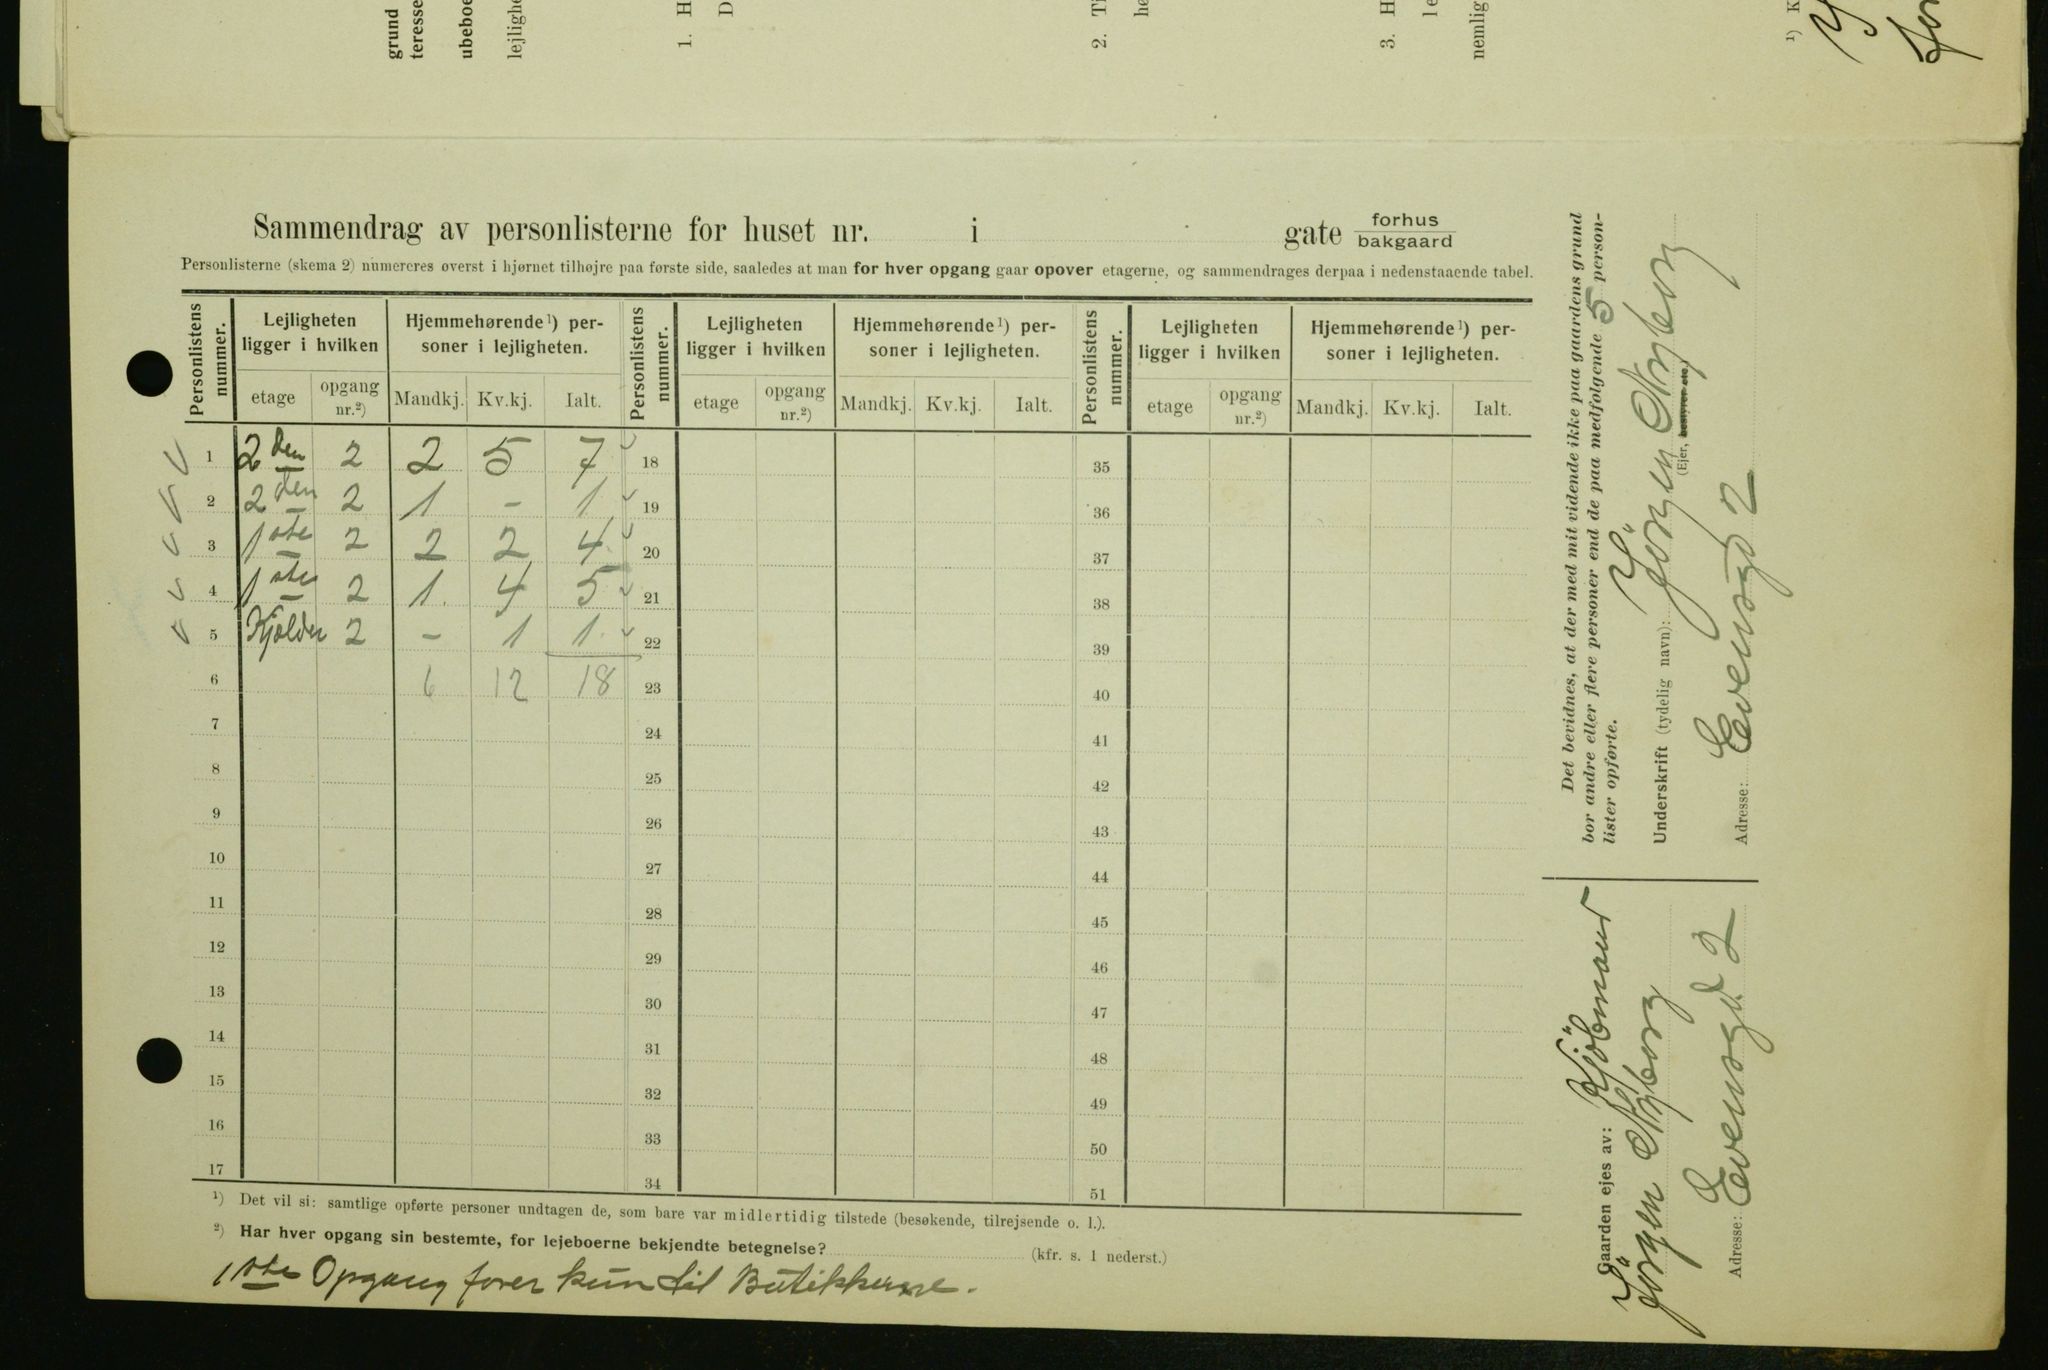 grund
teresse
ubeboe
lejlighe
1. H
D
2. Ti
he
3. H
le
nemlig
¹) K
Sammendrag av personlisterne for huset nr. i gate forhus
bakgaard
Personlisterne (skema 2) numereres øverst i hjørnet tilhøjre paa første side, saaledes at man for hver opgang gaar opover etagerne, og sammendrages derpaa i nedenstaaende tabel.
Personlistens nummer. Lejligheten ligger i hvilken Hjemmehørende¹) personer i lejligheten. Personlistens nummer. Lejligheten ligger i hvilken Hjemmehørende¹) personer i lejligheten. Personlistens nummer. Lejligheten ligger i hvilken Hjemmehørende¹) personer i lejligheten.
etage opgang nr.²) Mandkj. Kv.kj. Ialt. etage opgang nr.²) Mandkj. Kv.kj. Ialt. etage opgang nr.²) Mandkj. Kv.kj. Ialt.
1 2den 2 2 5 7 18 35
2 2den 2 1 - 1 19 36
3 1ste 2 2 2 4 20 37
4 1ste 2 1 4 5 21 38
5 Kjelder 2 - 1 1 22 39
6 6 12 18 23 40
7 24 41
8 25 42
9 26 43
10 27 44
11 28 45
12 29 46
13 30 47
14 31 48
15 32 49
16 33 50
17 34 51
¹) Det vil si: samtlige opførte personer undtagen de, som bare var midlertidig tilstede (besøkende, tilrejsende o. l.).
²) Har hver opgang sin bestemte, for lejeboerne bekjendte betegnelse? (kfr. s. 1 nederst.)
1ste Opgang fører kun til Butikkerne.
Det bevidnes, at der med mit vidende ikke paa gaardens grund
bor andre eller flere personer end de paa medfølgende 5 person-
lister opførte.
Underskrift (tydelig navn): Jörgen Nyborg
(Ejer, bestyrer etc.)
Adresse: Evensgd 2
Gaarden ejes av: Kjöbmand
Jörgen Nyborg
Adresse: Evensgd 2